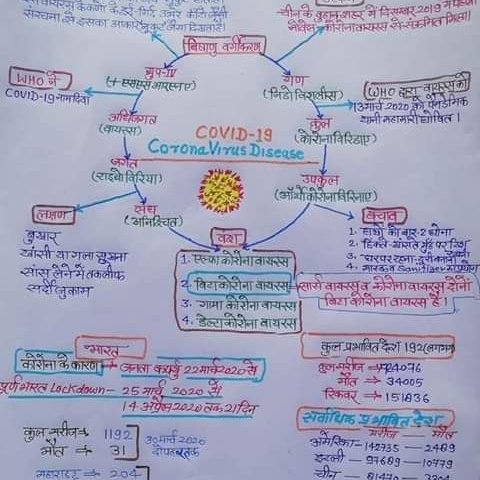 संरचना से इसका आकार मुकुट जैसा दिखता है
चीन के वुहान शहर में दिसम्बर 2019 में पहला
कोरोनावायरस से संक्रमित मिला।
विषाणु वर्गीकरण
WHO ने
COVID-19 नाम दिया
ग्रुप-IV
(+एसएसआरएनए)
गण
(निडोविरालीस)
WHO द्वारा वायरस को
13 मार्च 2020 को पैनडेमिक
यानी महामारी घोषित।
अधिजगत
(वायरस)
कुल
(कोरोनाविरिडाए)
COVID-19
CoronaVirus Disease
जगत
(राइबोविरिया)
उपकुल
(ऑर्थोकोरोनाविरिनाए)
संघ
(अनिश्चित)
वंश
लक्षण
बुखार
खांसी या गला सूखना
सांस लेने में तकलीफ
सर्दी जुकाम
बचाव
1. हाथों को बार-2 धोना
4. मास्क व Sanitiser का प्रयोग
1. एल्फा कोरोना वायरस
2. बिटा कोरोना वायरस
3. गामा कोरोना वायरस
4. डेल्टा कोरोना वायरस
सार्स वायरस व कोरोना वायरस दोनों
बिटा कोरोना वायरस है।
भारत
कोरोना के कारण जनता कर्फ्यू 22 मार्च 2020 से
पूर्ण भारत Lockdown - 25 मार्च 2020 से
14 अप्रैल 2020 तक 21 दिन
कुल मरीज → 1192
मौत → 31
30 मार्च 2020
दोपहर तक
महाराष्ट्र → 204
कुल प्रभावित देश 192 (लगभग)
कुल मरीज → 724076
मौत → 34005
रिकवर → 151836
सर्वाधिक प्रभावित देश
मरीज — मौत
अमेरिका - 142735 — 2489
इटली - 97689 - 10779
चीन - 81470 - 3304